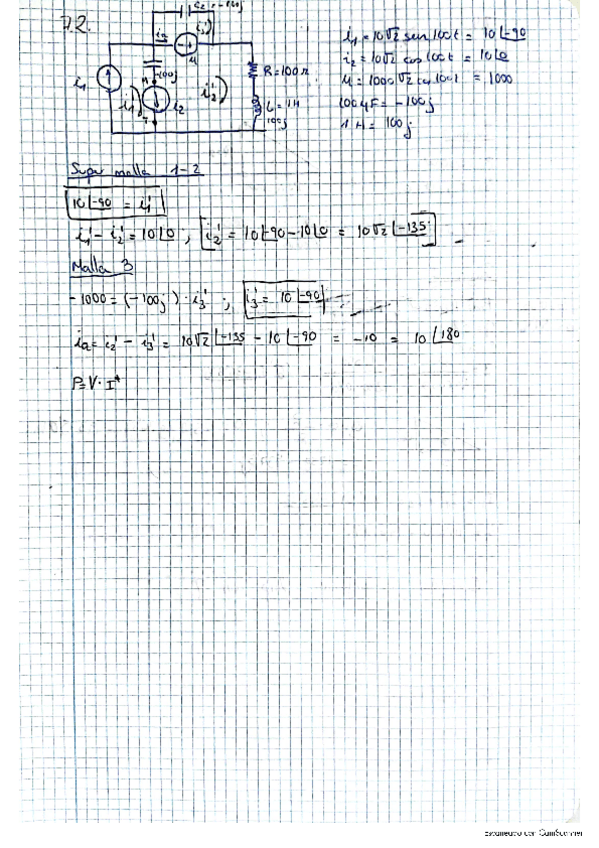 72.
C2=-100j
i3'
ia
M
i1
100j
i1'
M
i2
i2'
R=100Ω
L=1H
100j
i1=10√2 sen100t = 10∟-90
i2=10√2 cos100t = 10∟0
M = 1000√2 cos100t = 1000
100μF= -100j
1H= 100j
Super malla 1-2
10∟-90 = i1'
i1'- i2' = 10∟0 ; i2' = 10∟-90 - 10∟0 = 10√2 ∟-135
Malla 3
-1000 = (-100j) · i3' ; i3' = 10∟-90
ia = i2' - i3' = 10√2 ∟-135 - 10∟-90 = -10 = 10∟180
P=V·I*
Escaneado con CamScanner